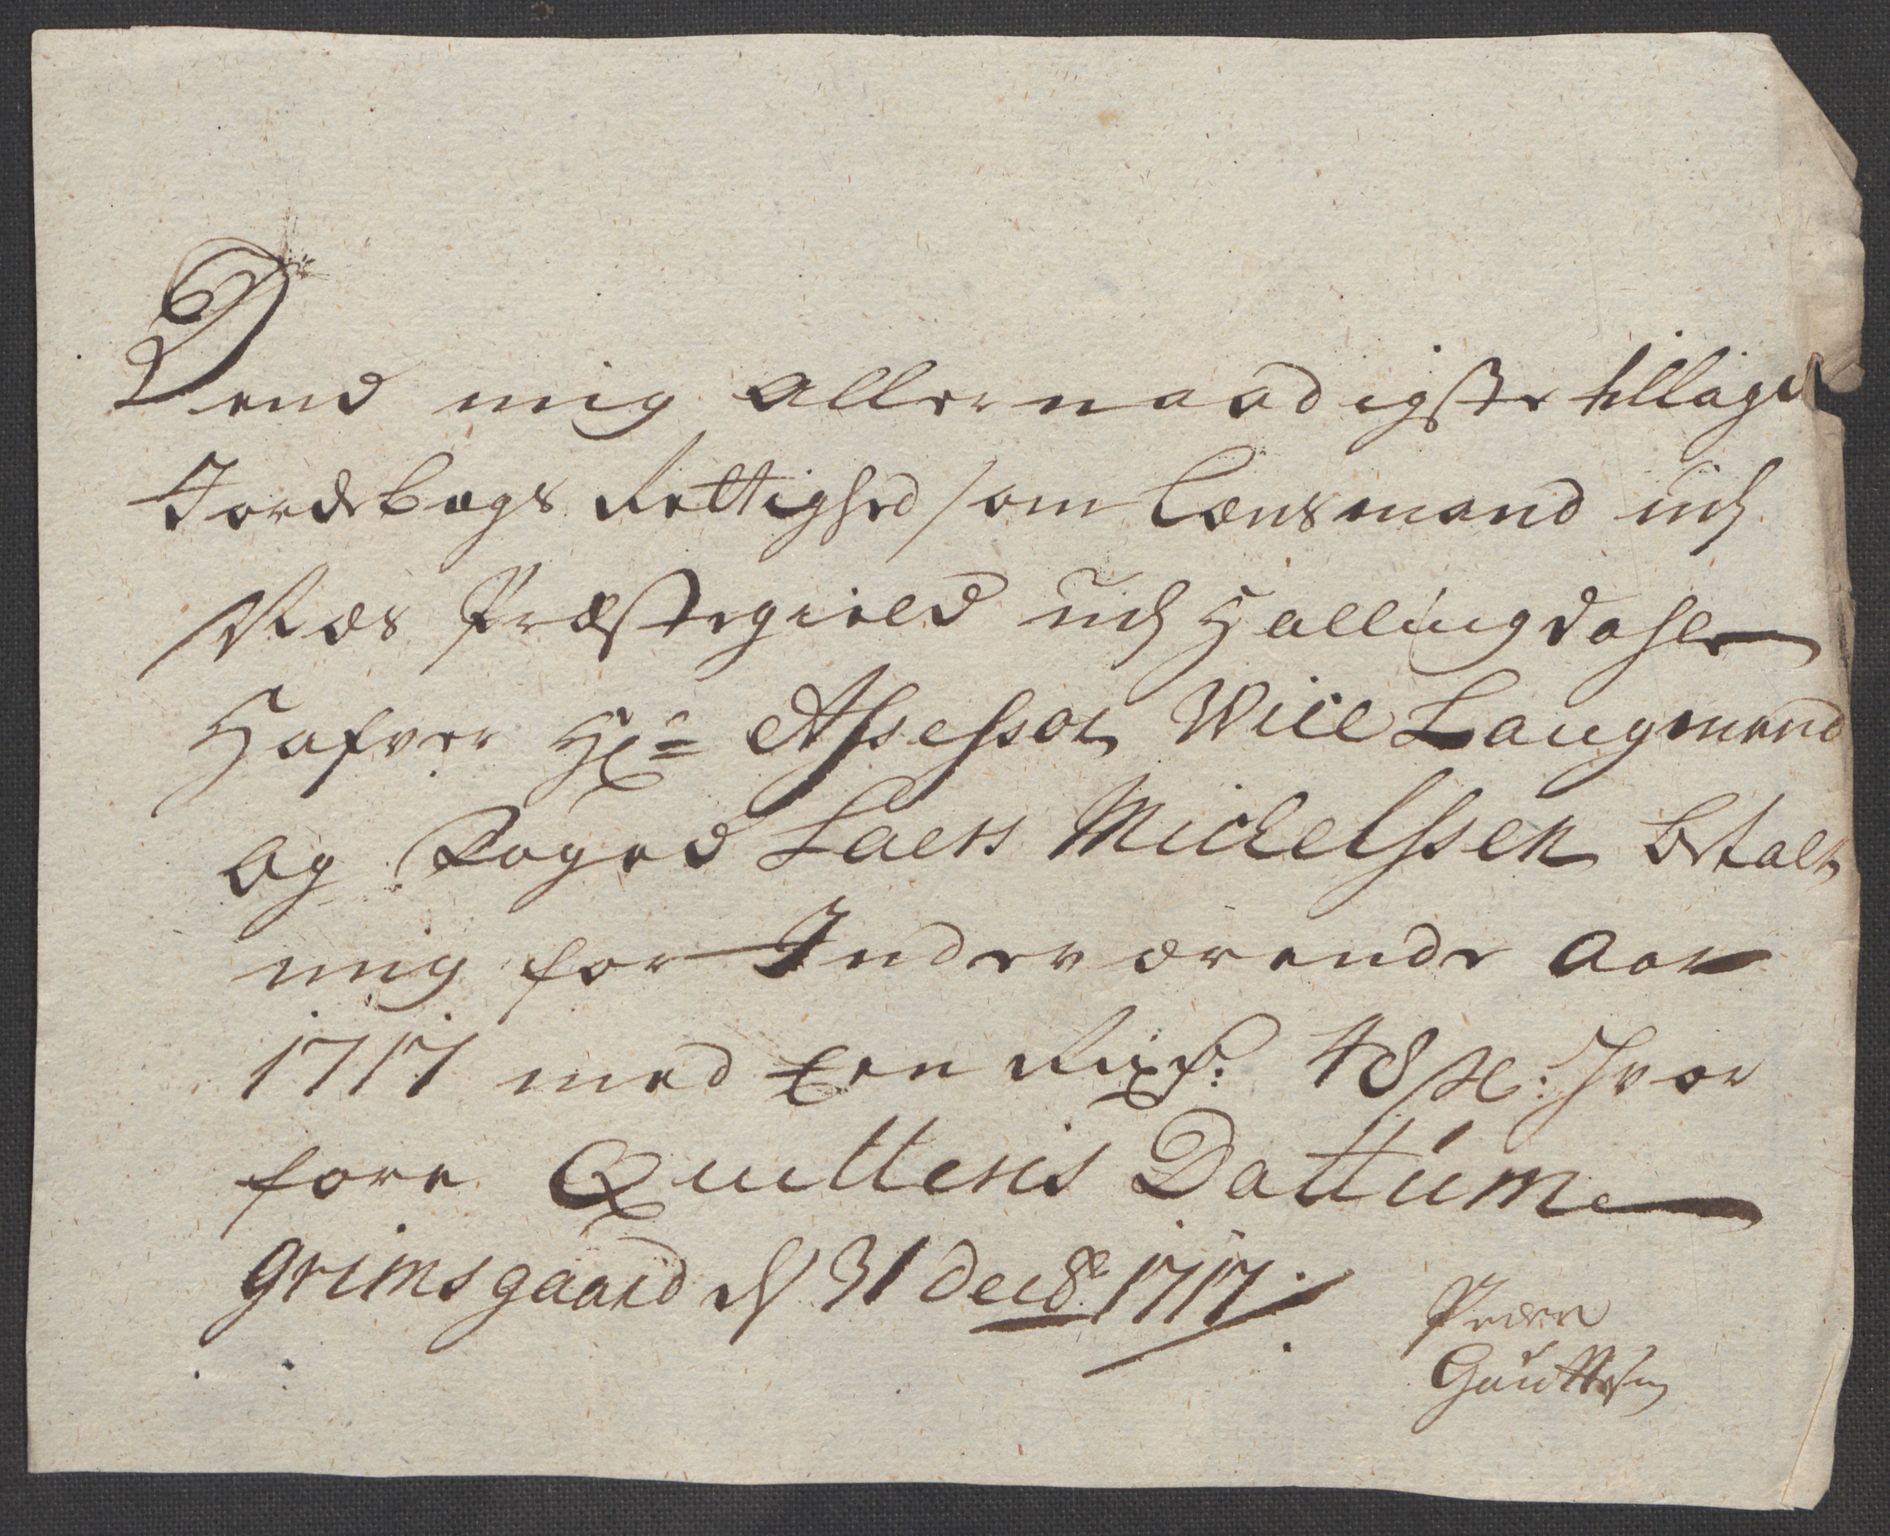 Dend mig allernaadigste tillagde
Jordebogs Rettighed som Lænsmand udj
Næs Præstegield udj Hallingdahle
Hafver Hr: Assessor Vice Laugmand
og Foged Laers Michelssen betalt
mig for Indeværende Aar
1717 med Een Rixd: 48 s: hvor
fore Quitteris Dattum
Grimsgaard d 31 Decbr 1717
Peder
Guttesen